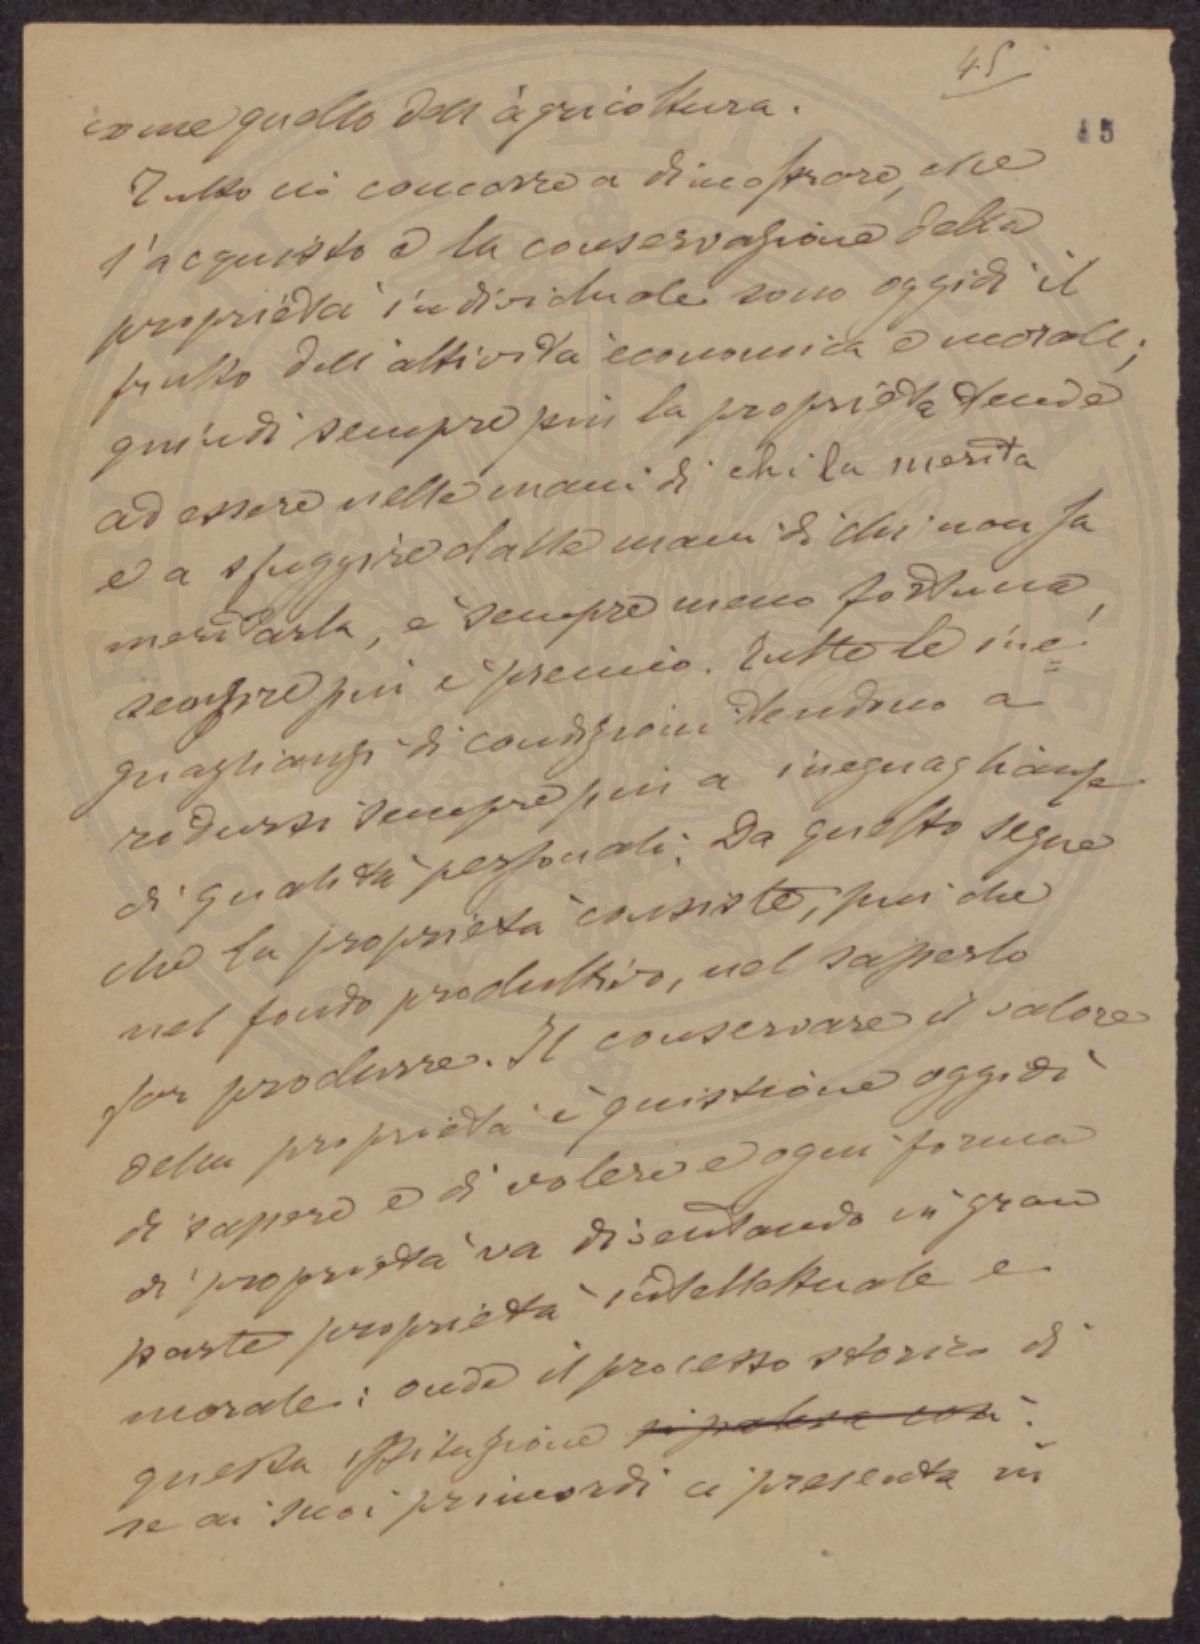 45
45
come quello dell'agricoltura.
Tutto ciò concorre a dimostrare, che
l'acquisto e la conservazione della
proprietà individuale sono oggidì il
frutto dell'attività economica e morale;
quindi sempre più la proprietà tende
ad essere nelle mani di chi la merita
e a sfuggire dalle mani di chi non sa
meritarla, è sempre meno fortuna,
sempre più è premio. Tutte le ine=
guaglianze di condizioni tendono a
ridursi sempre più a ineguaglianze
di qualità personali. Da questo segue
che la proprietà consiste, più che
nel fondo produttivo, nel saperlo
far produrre. Il conservare il valore
della proprietà è quistione oggidì
di sapere e di volere e ogni forma
di proprietà va diventando in gran
parte proprietà intellettuale e
morale: onde il processo storico di
questa istituzione si palesa così:
se ai suoi primordi ci presenta in